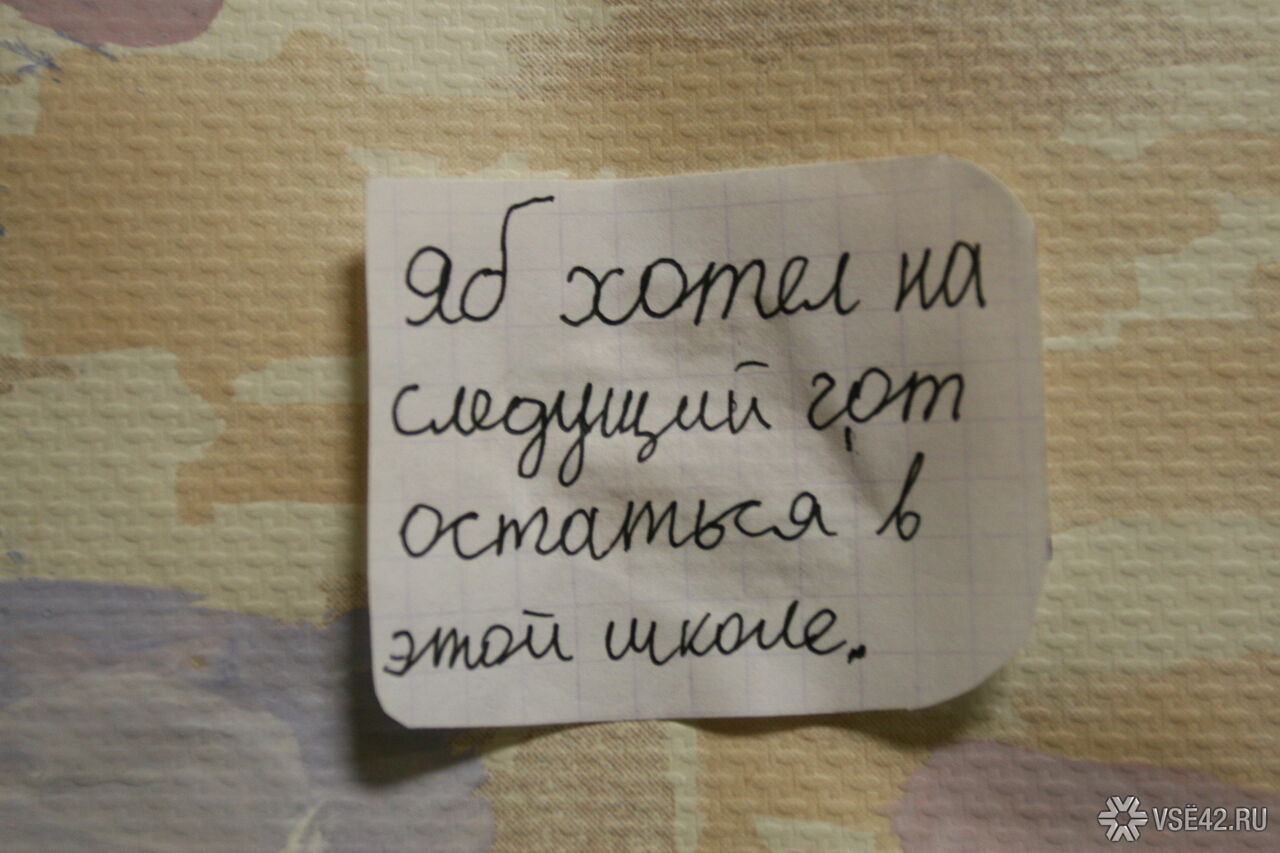 Яб хотел на
следущий гот
остаться в
этой школе.
VSЁ42.RU